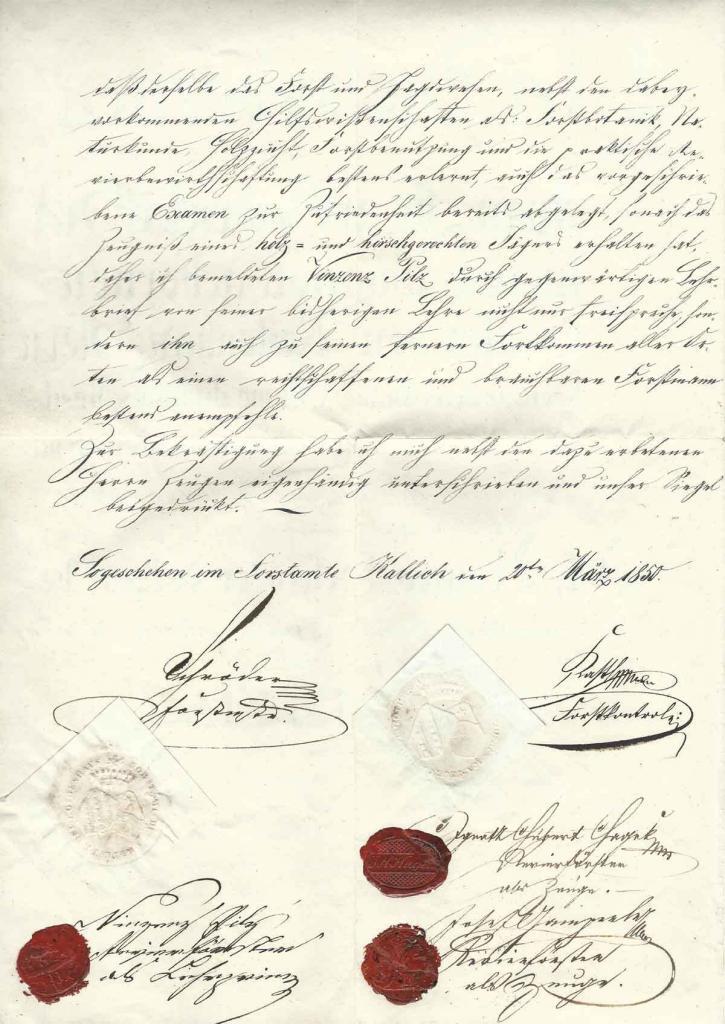 daß derselbe das Forst und Jagdwesen, nebst den dabey
vorkommenden Hilfswißenschaften als: Forstbotanik, Na-
turkunde, Holzzucht, Forstbenutzung und die praktische Re-
vierbewirthschaftung bestens erlernt, auch das vorgeschrie-
bene Examen zur Zufriedenheit bereits abgelegt, sonach das
Zeugniß eines holz= und hirschgerechten Jägers erhalten hat,
daher ich bemeldeten Vinzenz Pilz durch gegenwärtigen Lehr-
brief von seiner bisherigen Lehre nicht nur freispreche, son-
dern ihn auch zu seinen fernern Fortkommen aller Or-
ten als einen rechtschaffenen und brauchbaren Forstmann
bestens anempfehle.
Zur Bekräftigung habe ich mich nebst den dazu erbetenen
Herrn Zeugen eigenhändig unterschrieben und unser Siegel
beigedrückt. —
Sogeschehen im Forstamte Kallich den 20ten März 1850.
Schröder
Forstmstr.
Forstkontrolor
Ignatz
Revierförster
als Zeuge. —
Vinzenz Pilz
Revierförster
als Lehrprinz
Josef
Revierförster
als Zeuge.